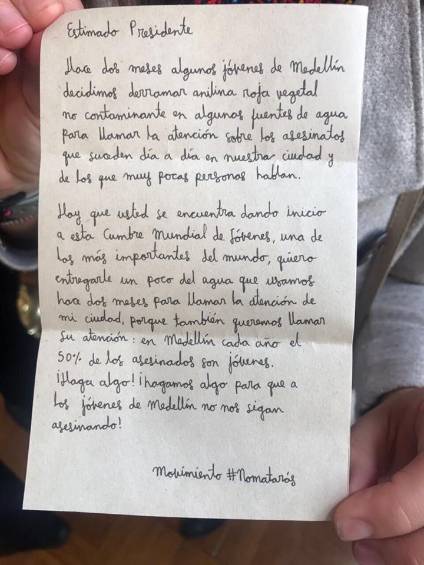 Estimado Presidente
Hace dos meses algunos jóvenes de Medellín
decidimos derramar anilina roja vegetal
no contaminante en algunas fuentes de agua
para llamar la atención sobre los asesinatos
que suceden día a día en nuestra ciudad y
de los que muy pocas personas hablan.
Hoy que usted se encuentra dando inicio
a esta Cumbre Mundial de Jóvenes, una de
las más importantes del mundo, quiero
entregarle un poco del agua que usamos
hace dos meses para llamar la atención de
mi ciudad, porque también queremos llamar
su atención: en Medellín cada año el
50% de los asesinados son jóvenes.
¡Haga algo! ¡hagamos algo para que a
los jóvenes de Medellín no nos sigan
asesinando!
Movimiento #Nomatarás